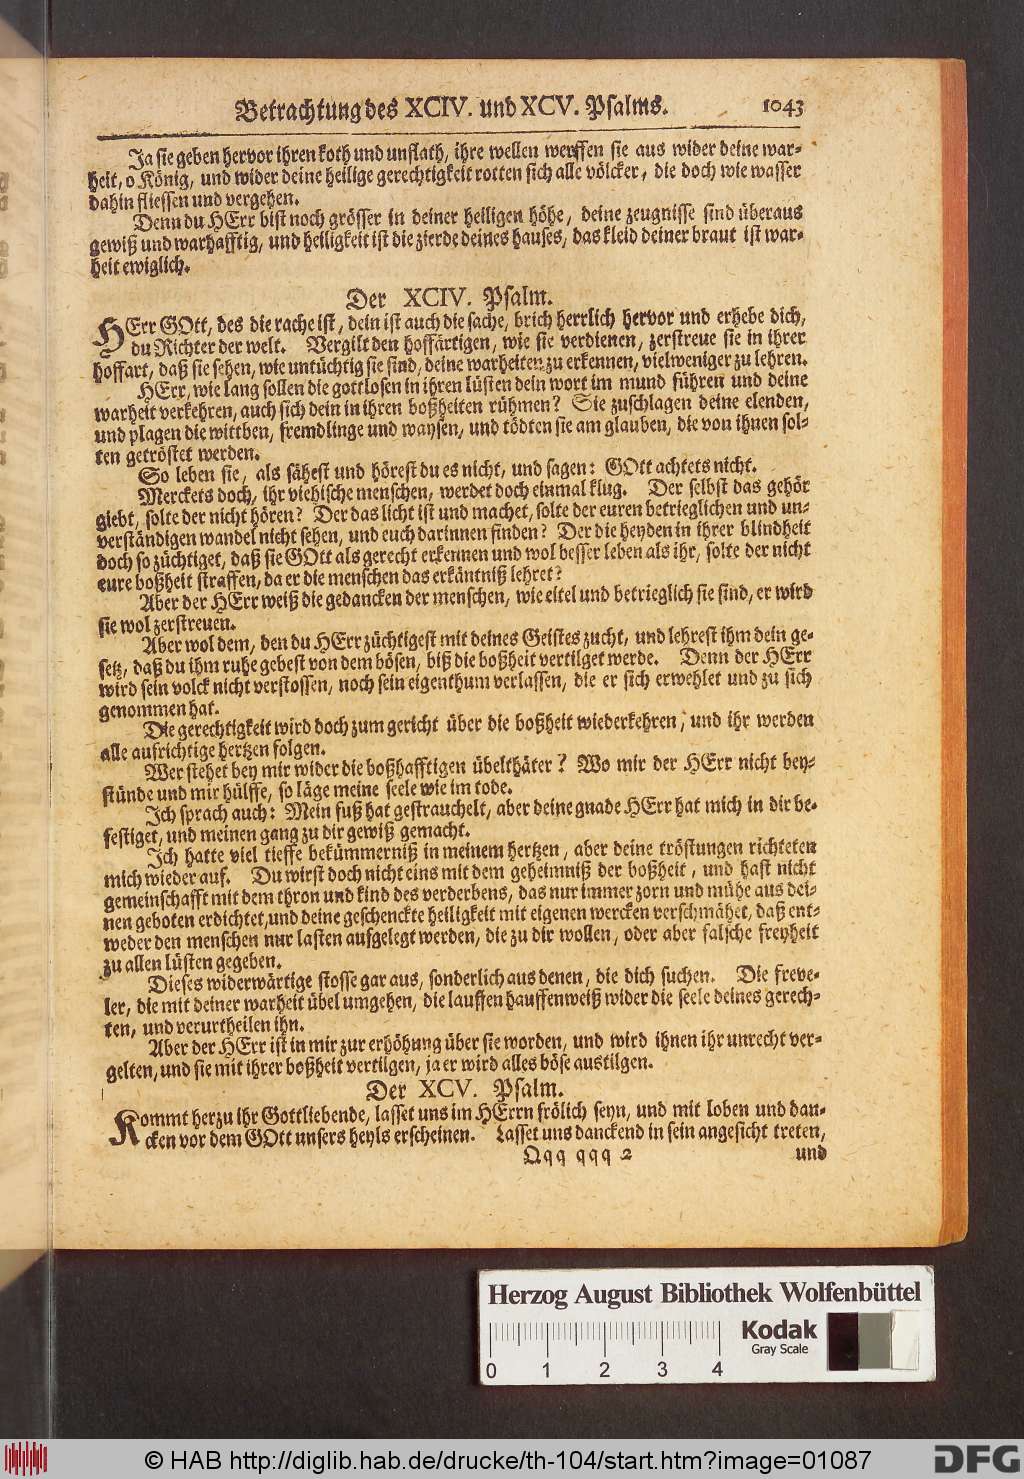 Betrachtung des XCIV. und XCV. Psalms. 1043
Ja sie geben hervor ihren koth und unflath, ihre wellen werffen sie aus wider deine war-
heit, o König, und wider deine heilige gerechtigkeit rotten sich alle völcker, die doch wie wasser
dahin fliessen und vergehen.
Denn du HErr bist noch grösser in deiner heiligen höhe, deine zeugnisse sind überaus
gewiß und warhafftig, und heiligkeit ist die zierde deines hauses, das kleid deiner braut ist war-
heit ewiglich.
Der XCIV. Psalm.
HErr GOtt, des die rache ist, dein ist auch die sache, brich herrlich hervor und erhebe dich,
du Richter der welt. Vergilt den hoffärtigen, wie sie verdienen, zerstreue sie in ihrer
hoffart, daß sie sehen, wie untüchtig sie sind, deine warheiten zu erkennen, vielweniger zu lehren.
HErr, wie lang sollen die gottlosen in ihren lüsten dein wort im mund führen und deine
warheit verkehren, auch sich dein in ihren boßheiten rühmen? Sie zuschlagen deine elenden,
und plagen die wittben, fremdlinge und waysen, und tödten sie am glauben, die von ihnen sol-
ten getröstet werden.
So leben sie, als sähest und hörest du es nicht, und sagen: GOtt achtets nicht.
Merckets doch, ihr viehische menschen, werdet doch einmal klug. Der selbst das gehör
giebt, solte der nicht hören? Der das licht ist und machet, solte der euren betrieglichen und un-
verständigen wandel nicht sehen, und euch darinnen finden? Der die heyden in ihrer blindheit
doch so züchtiget, daß sie GOtt als gerecht erkennen und wol besser leben als ihr, solte der nicht
eure boßheit straffen, da er die menschen das erkäntniß lehret?
Aber der HErr weiß die gedancken der menschen, wie eitel und betrieglich sie sind, er wird
sie wol zerstreuen.
Aber wol dem, den du HErr züchtigest mit deines Geistes zucht, und lehrest ihm dein ge-
setz, daß du ihm ruhe gebest von dem bösen, biß die boßheit vertilget werde. Denn der HErr
wird sein volck nicht verstossen, noch sein eigenthum verlassen, die er sich erwehlet und zu sich
genommen hat.
Die gerechtigkeit wird doch zum gericht über die boßheit wiederkehren, und ihr werden
alle aufrichtige hertzen folgen.
Wer stehet bey mir wider die boßhafftigen übelthäter? Wo mir der HErr nicht bey-
stünde und mir hülffe, so läge meine seele wie im tode.
Ich sprach auch: Mein fuß hat gestrauchelt, aber deine gnade HErr hat mich in dir be-
festiget, und meinen gang zu dir gewiß gemacht.
Ich hatte viel tieffe bekümmerniß in meinem hertzen, aber deine tröstungen richteten
mich wieder auf. Du wirst doch nicht eins mit dem geheimniß der boßheit, und hast nicht
gemeinschafft mit dem thron und kind des verderbens, das nur immer zorn und mühe aus dei-
nen geboten erdichtet, und deine geschenckte heiligkeit mit eigenen wercken verschmähet, daß ent-
weder den menschen nur lasten aufgelegt werden, die zu dir wollen, oder aber falsche freyheit
zu allen lüsten gegeben.
Dieses widerwärtige stosse gar aus, sonderlich aus denen, die dich suchen. Die freve-
ler, die mit deiner warheit übel umgehen, die lauffen hauffenweiß wider die seele deines gerech-
ten, und verurtheilen ihn.
Aber der HErr ist in mir zur erhöhung über sie worden, und wird ihnen ihr unrecht ver-
gelten, und sie mit ihrer boßheit vertilgen, ja er wird alles böse austilgen.
Der XCV. Psalm.
Kommt herzu ihr Gottliebende, lasset uns im HErrn frölich seyn, und mit loben und dan-
cken vor dem GOtt unsers heyls erscheinen. Lasset uns danckend in sein angesicht treten,
Qqq qqq 2 und
Herzog August Bibliothek Wolfenbüttel
Kodak
Gray Scale
0 1 2 3 4
© HAB http://diglib.hab.de/drucke/th-104/start.htm?image=01087
DFG